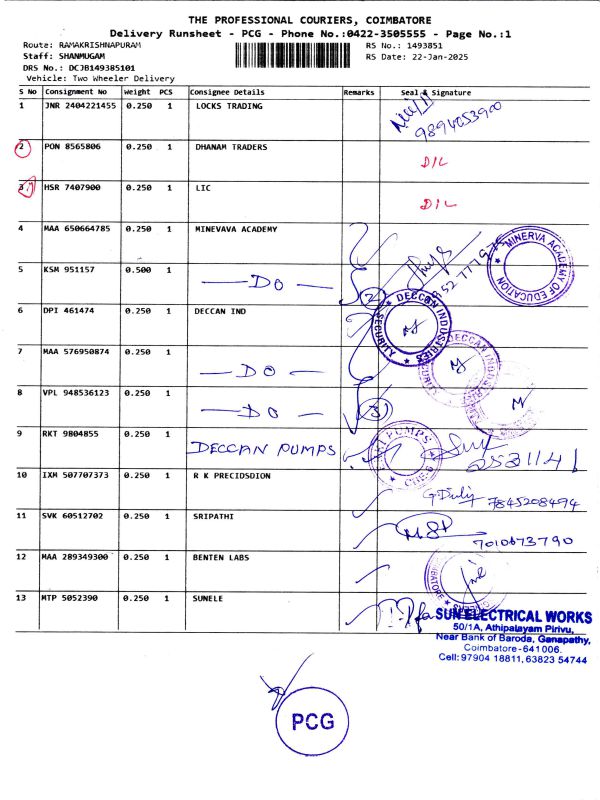 THE PROFESSIONAL COURIERS, COIMBATORE
Delivery Runsheet - PCG - Phone No.:0422-3505555 - Page No.:1
Route: RAMAKRISHNAPURAM
RS No.: 1493851
Staff: SHANMUGAM
RS Date: 22-Jan-2025
DRS No.: DCJB149385101
Vehicle: Two Wheeler Delivery
S No Consignment No Weight PCS Consignee Details Remarks Seal & Signature
1 JNR 2404221455 0.250 1 LOCKS TRADING
9894053900
2 PON 8565806 0.250 1 DHANAM TRADERS D/L
3 HSR 7407900 0.250 1 LIC D/L
4 MAA 650664785 0.250 1 MINEVAVA ACADEMY
MINERVA ACADEMY OF EDUCATION
5 KSM 951157 0.500 1 — DO — 2
6 DPI 461474 0.250 1 DECCAN IND
DECCAN INDUSTRIES SECURITY
7 MAA 576950874 0.250 1 — DO —
DECCAN INDUSTRIES
8 VPL 948536123 0.250 1 — DO — 3
9 RKT 9804855 0.250 1 DECCAN PUMPS 2531141
PUMPS
10 IXM 507707373 0.250 1 R K PRECIDSDION 7845208494
11 SVK 60512702 0.250 1 SRIPATHI 7010673790
12 MAA 289349300 0.250 1 BENTEN LABS
13 MTP 5052390 0.250 1 SUNELE
SUN ELECTRICAL WORKS
50/1A, Athipalayam Pirivu,
Near Bank of Baroda, Ganapathy,
Coimbatore-641 006.
Cell: 97904 18811, 63823 54744
PCG